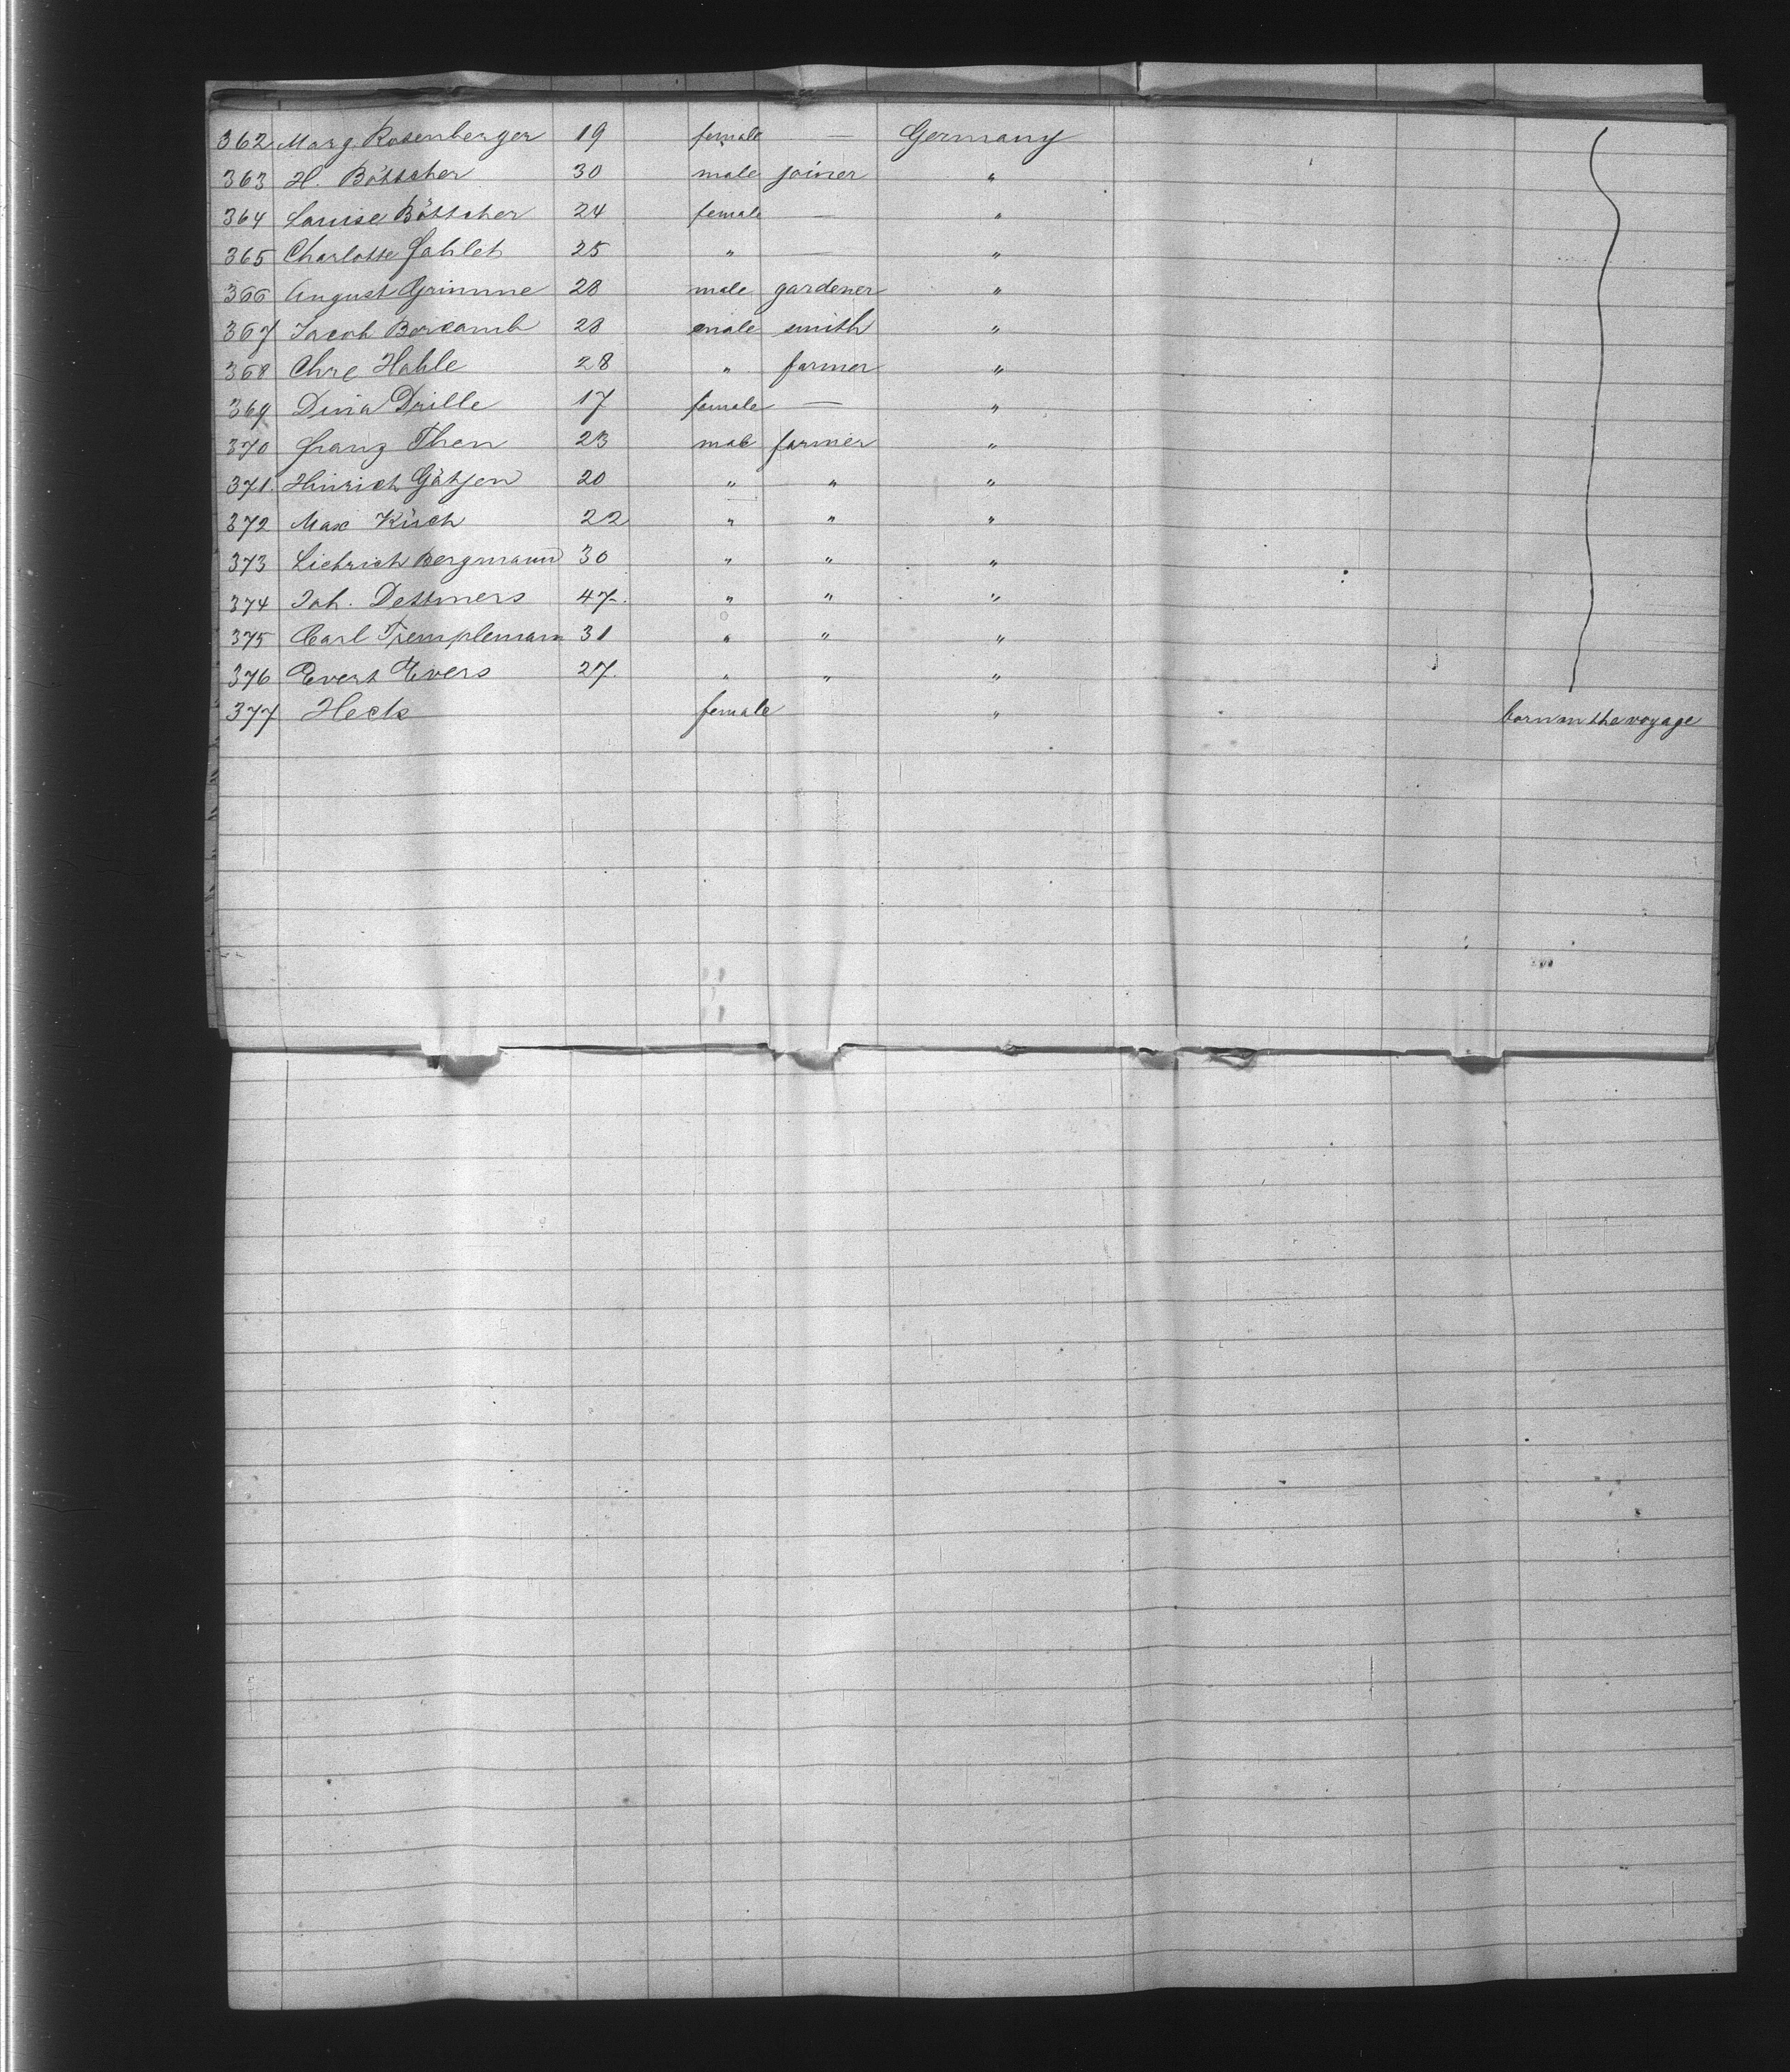 362 Marg. Rosenberger 19 female — Germany
363 H. Böttcher 30 male joiner "
364 Louise Böttcher 24 female — "
365 Charlotte 25 " — "
366 August Grimme 28 male gardener "
367 Jacob 28 male smith "
368 Chre Hohle 28 " farmer "
369 Dina Drille 17 female — "
370 Franz Then 23 male farmer "
371. Hinrich Götjen 20 " " "
372 Max Kisch 22 " " "
373 Bergmann 30 " " "
374 Joh. Dettmers 47. " " "
375 Carl Tremplemann 31 " " "
376 Evert Evers 27. " " "
377 Heck female " born on the voyage